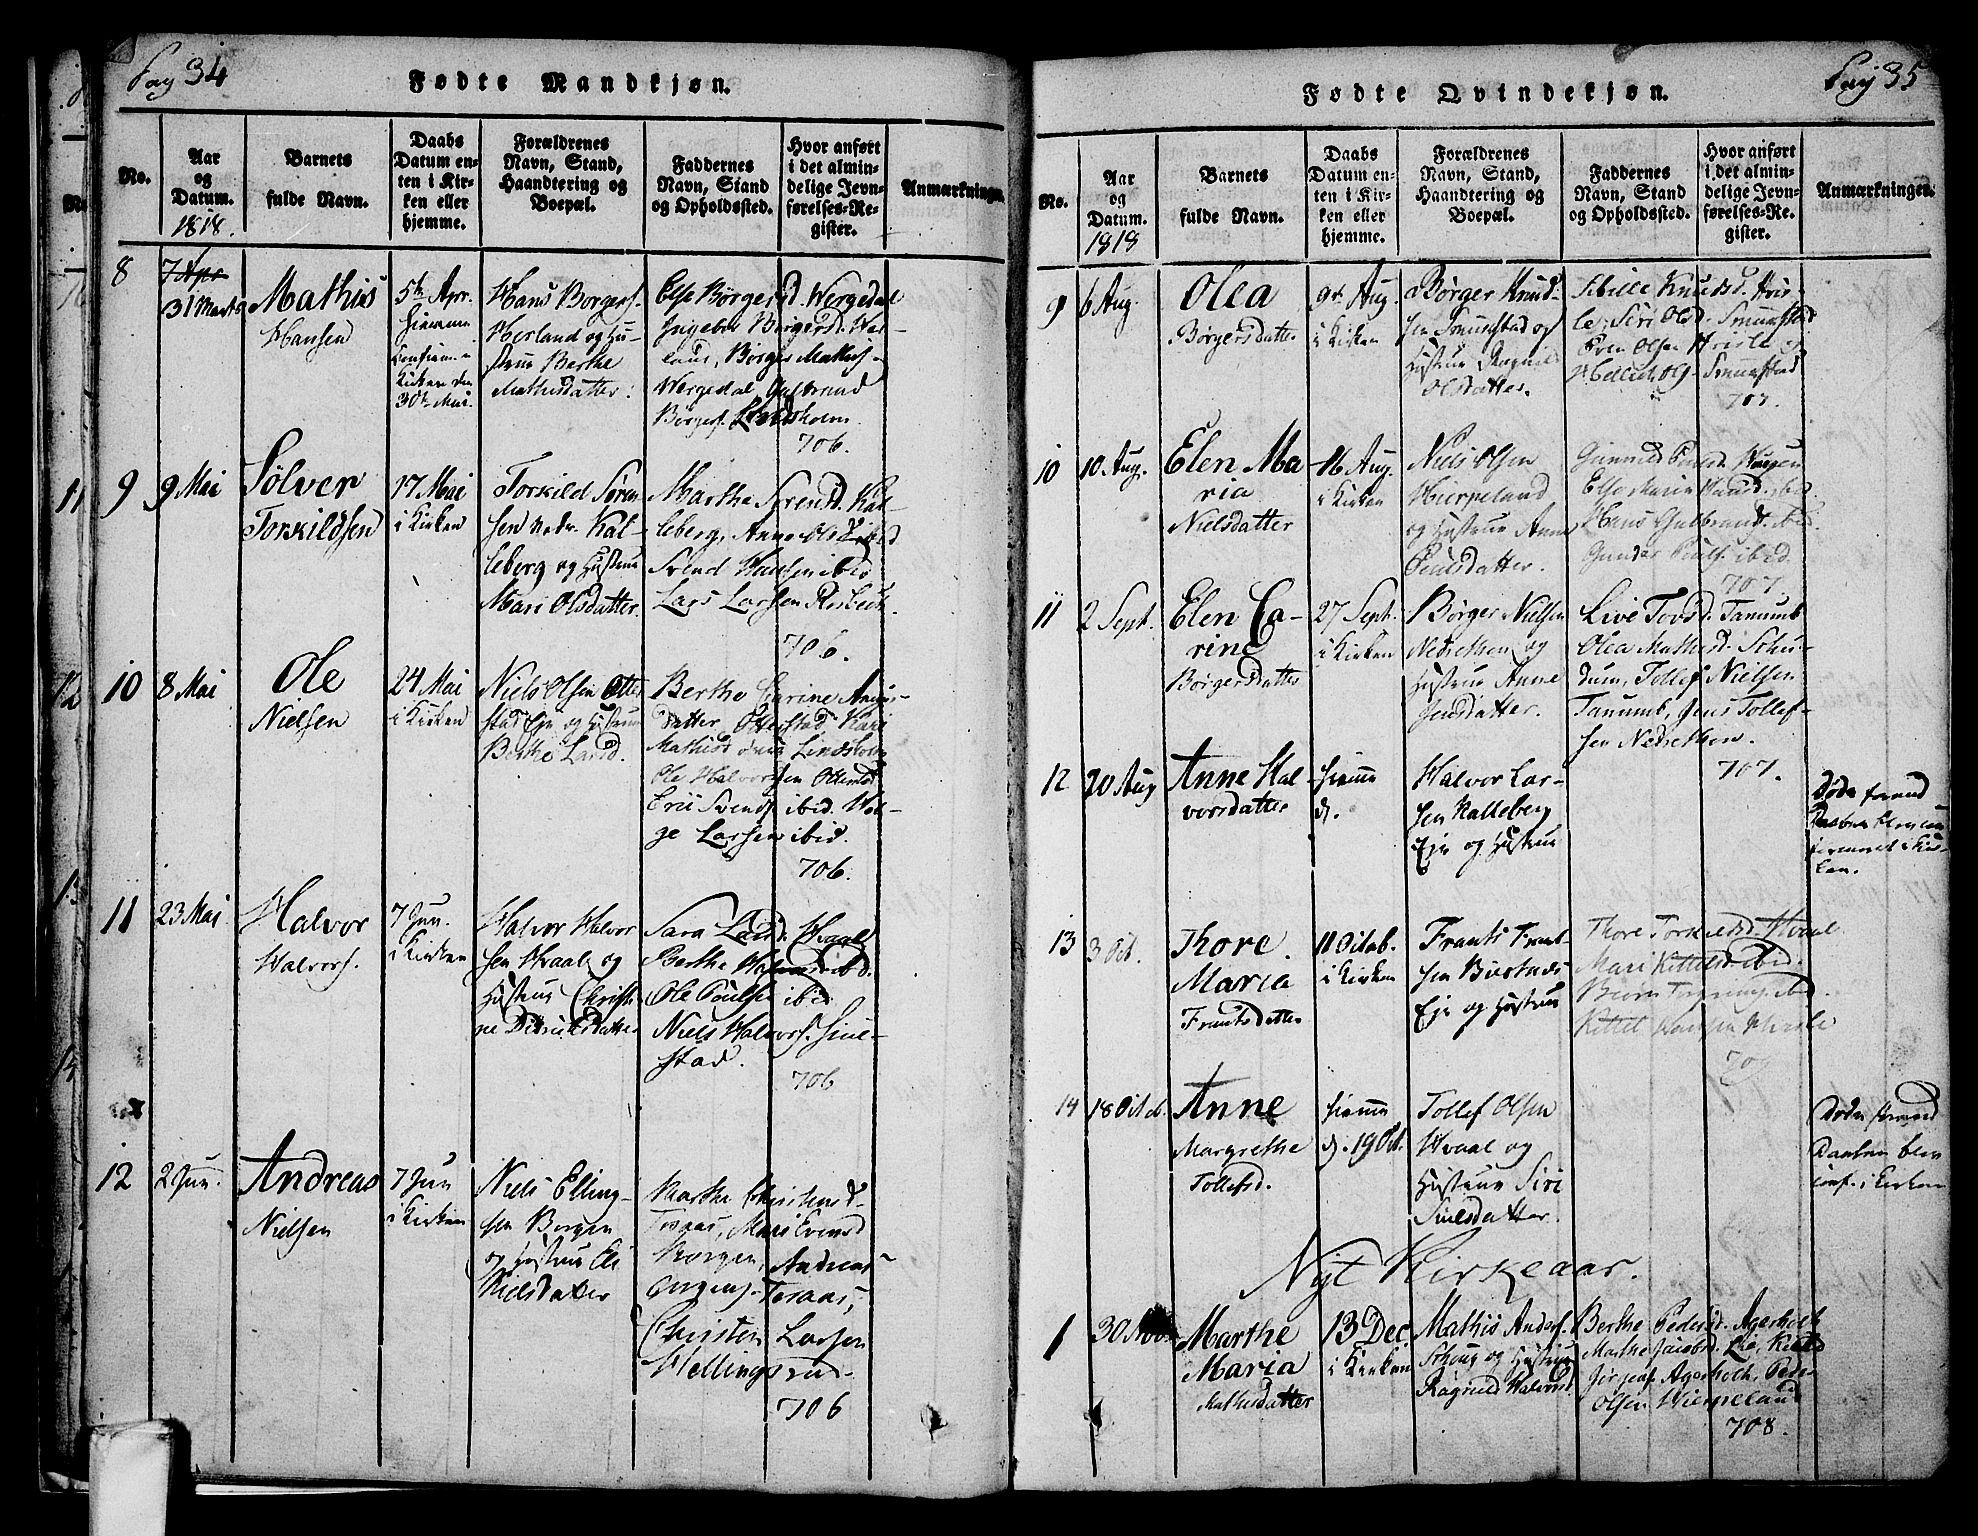 Pag 34
Fødte Mandkjøn.
No.
Aar
og
Datum.
1818.
Barnets
fulde Navn.
Daabs
Datum en-
ten i Kir-
ken eller
hjemme.
Forældrenes
Navn, Stand,
Haandtering og
Boepæl.
Faddernes
Navn, Stand
og Opholdssted.
Hvor anført
i det almin-
delige Jevn-
førelses-Re-
gister.
Anmærkninger.
8
7 Apr
31 Marts
Mathis
Hansen
5te Apr.
hjemme
Kirken den
30te Mai.
Hans Borgers.
Herland og Hu-
strue Berthe
Mathisdatter.
Else Børgersd. Wergedal
Ingebor Borgersd.
Børger Mathis-
Wergedal
Borgers. Lindsholm
706.
9
9 Mai
Sølver
Torkildsen
17 Mai
i Kirken
Torkild Søren
sen Nedr. Kal-
leberg og Hustrue
Mari Olsdatter.
Marthe Sørensd. Kal-
leberg, Anne Olsd. ibid
Svend Hansen ibid
Lars Larsen
706.
10
8 Mai
Ole
Nielsen
24 Mai
i Kirken
Niels Olsen Otter
stad Eje og Hustrue
Berthe Larsd.
Berthe Carine
datter Otterstad Kari
Mathisd
Ole Halvorsen
Svends. ibid. Hel-
ge Larsen ibid.
706.
11
23 Mai
Halvor
Halvors.
7 Jun.
i Kirken
Halvor Halvor
sen Hvaale og
Hustrue Christi-
ne Didriksdatter
Sara Larsd.
Berthe
Ole Poulse ibid.
Niels Halvors.
stad.
706
12
2 Jun.
Andreas
Nielsen
7 Jun
i Kirken
Niels Elling-
sen Borgen
og Hustrue Els
Nielsdatter
Marthe Christensd.
Toraas, Mari Evensd
Borgen, Andreas
Toraas,
Christen Larsen
Hellingsrud.
706
Pag 35
Fødte Qvindekjøn.
No.
Aar
og
Datum.
1818
Barnets
fulde Navn.
Daabs
Datum en-
ten i Kir-
ken eller
hjemme.
Forældrenes
Navn, Stand,
Haandtering og
Boepæl.
Faddernes
Navn, Stand
og Opholdssted.
Hvor anført
i det almin-
delige Jevn-
førelses-Re-
gister.
Anmærkninger.
9
6 Aug.
Olea
Børgersdatter
9de Aug.
i Kirken
Børger Knud-
sen Smunstad og
Hustrue Ragnild
Olsdatter.
Sibille Knudsd. Hvis-
le, Siri Olsd. Smunstad
Even Olsen Hvisle og
Smunstad
707.
10
10 Aug.
Elen Ma
ria
Nielsdatter
16 Aug.
i Kirken
Niels Olsen
Hierpeland
og Hustrue Anne
Poulsdatter.
Gunnild Poulsd.
Else Marie Hansd. ibid.
Hans Gulbrands. ibid.
Gunder Pouls. ibid.
707.
11
2 Sept.
Elen Ca-
rine
Børgersdatter
27 Sept.
i Kirken
Børger Nielsen
Nedrethen og
Hustrue Anne
Jensdatter.
Live Tovsd. Tanumb
Olea Mathisd. Schu-
dum, Tollef Nielsen
Tanumb, Jens Tollef-
sen Nedrethen.
707.
12
20 Aug
Anne Hal
vorsdatter
hjemme
d.
Halvor Lar-
sen Kalleberg
Eje og Hustrue
Døde forend
ken.
13
3 Oct.
Thore
Maria
Frantsdatter
11 Octob.
i Kirken
Frants Frant-
sen Biestnæs
Eje og Hustrue
Thore Torkildsd. Hvaal
Mari Kittelsd. ibid.
Kittel Hansen Hvisle
707
14
18 Octob.
Anne
Margrethe
Tollefsd.
hjemme
d. 19 Oct.
Tollef Olsen
Hvaal og
Hustrue Siri
Poulsdatter.
Døde forend
Daaben blev
conf. i Kirken
Nyt Kirkeaar.
1
30 Nov.
Marthe
Maria
Mathisdatter
13 Dec.
i Kirken
Mathis Anders.
og Hustrue
Ragnild Halvorsd.
Berthe Pedersd. Agerholt
Marthe Jacobsd. Lie,
Agerholt, Peder
Olsen Hierpeland
708.